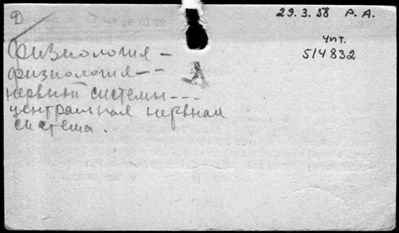 Д
29.3.58 Р.А.
Физиология –
физиология ---
чит.
514832
нервной системы ---
центральная нервная
система.